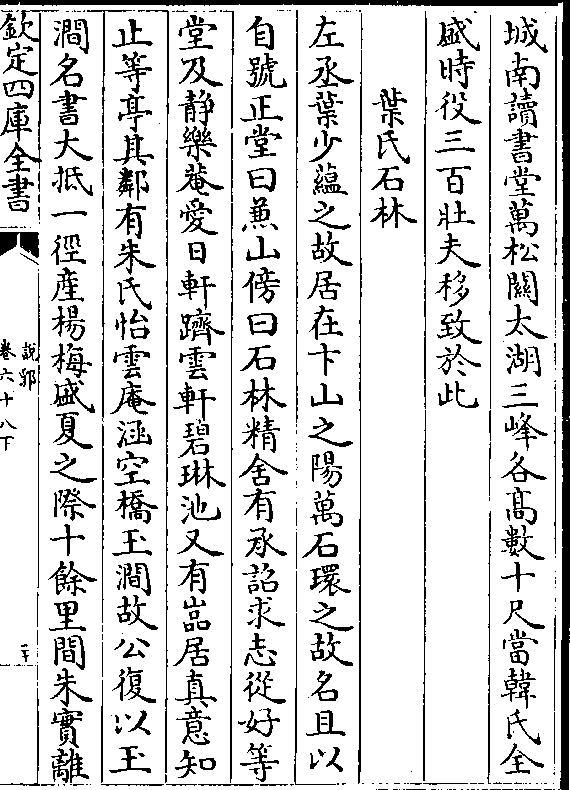 城南讀書堂萬松關太湖三峰各高數十尺當韓氏全
盛時役三百壯夫移致於此
葉氏石林
左丞葉少蘊之故居在卞山之陽萬石環之故名且以
自號正堂曰兼山傍曰石林精舍有承詔求志從好等
堂及静樂菴愛日軒躋雲軒碧琳池又有嵓居真意知
止等亭其鄰有朱氏怡雲庵涵空橋玉澗故公復以玉
澗名書大抵一徑産楊梅盛夏之際十餘里間朱實離
欽定四庫全書
說郛
卷六十八下
二十